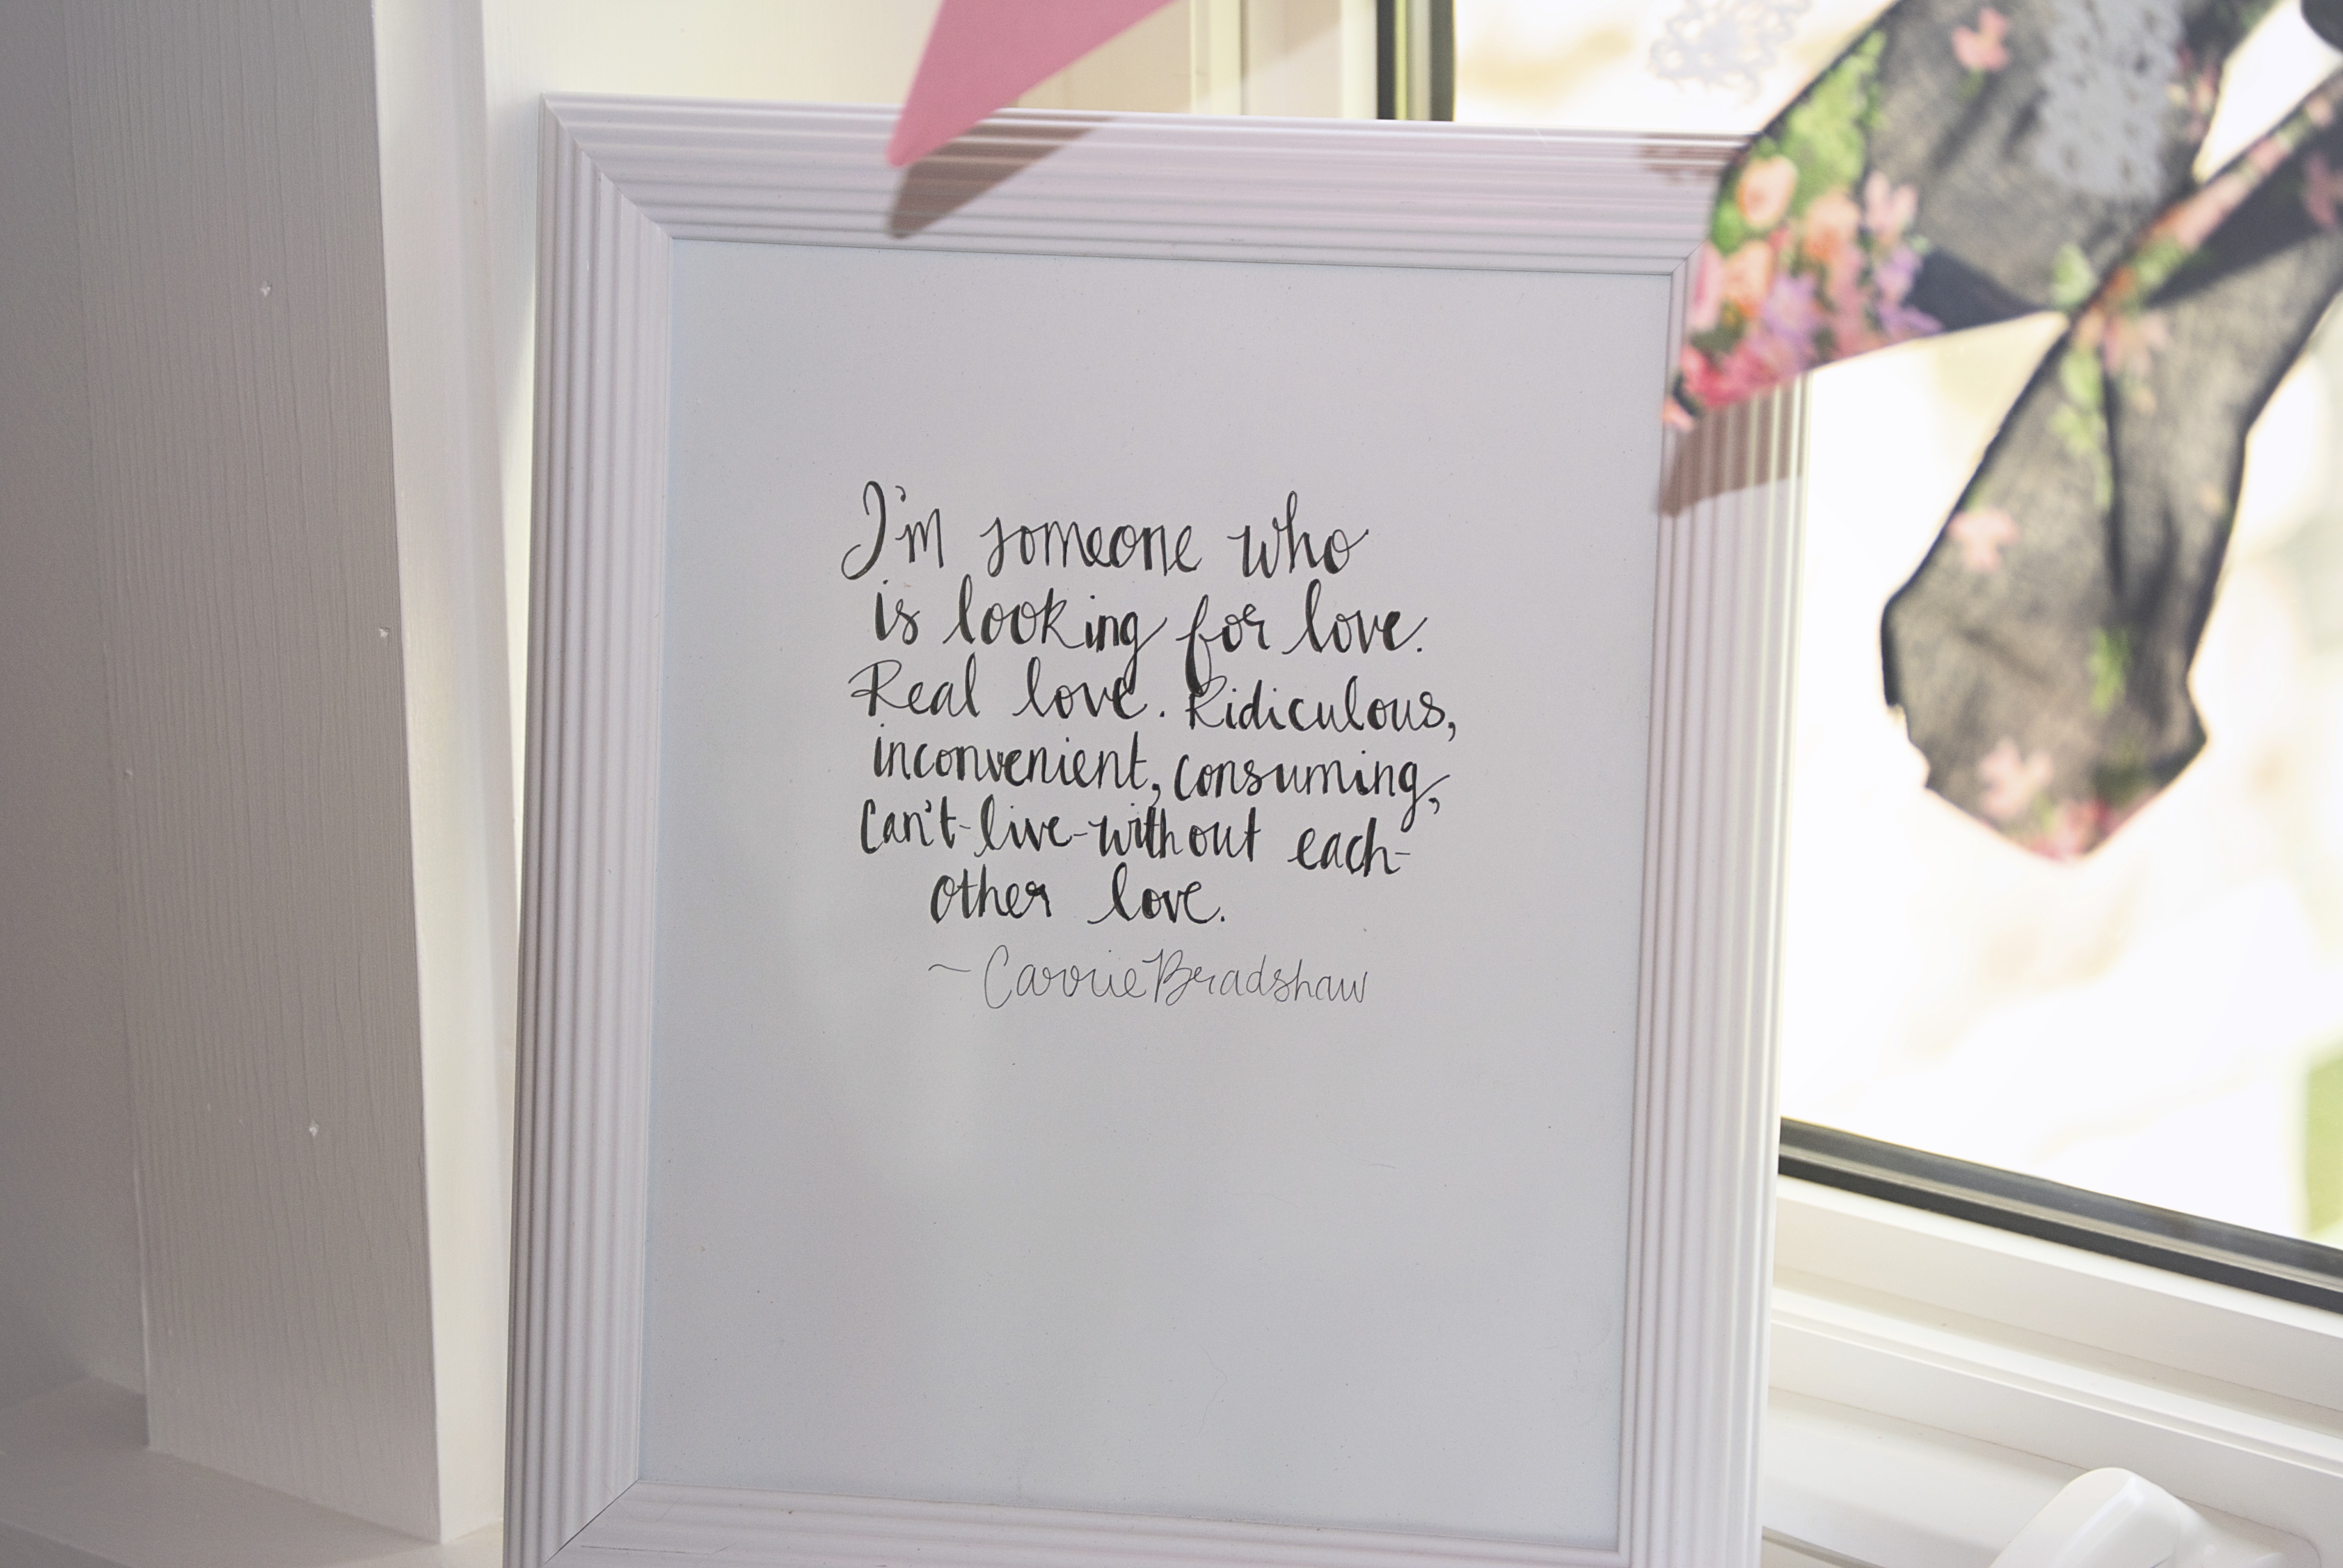 I'm someone who
is looking for love.
Real love. Ridiculous,
inconvenient, consuming,
can't-live-without each-
other love.
~ Carrie Bradshaw